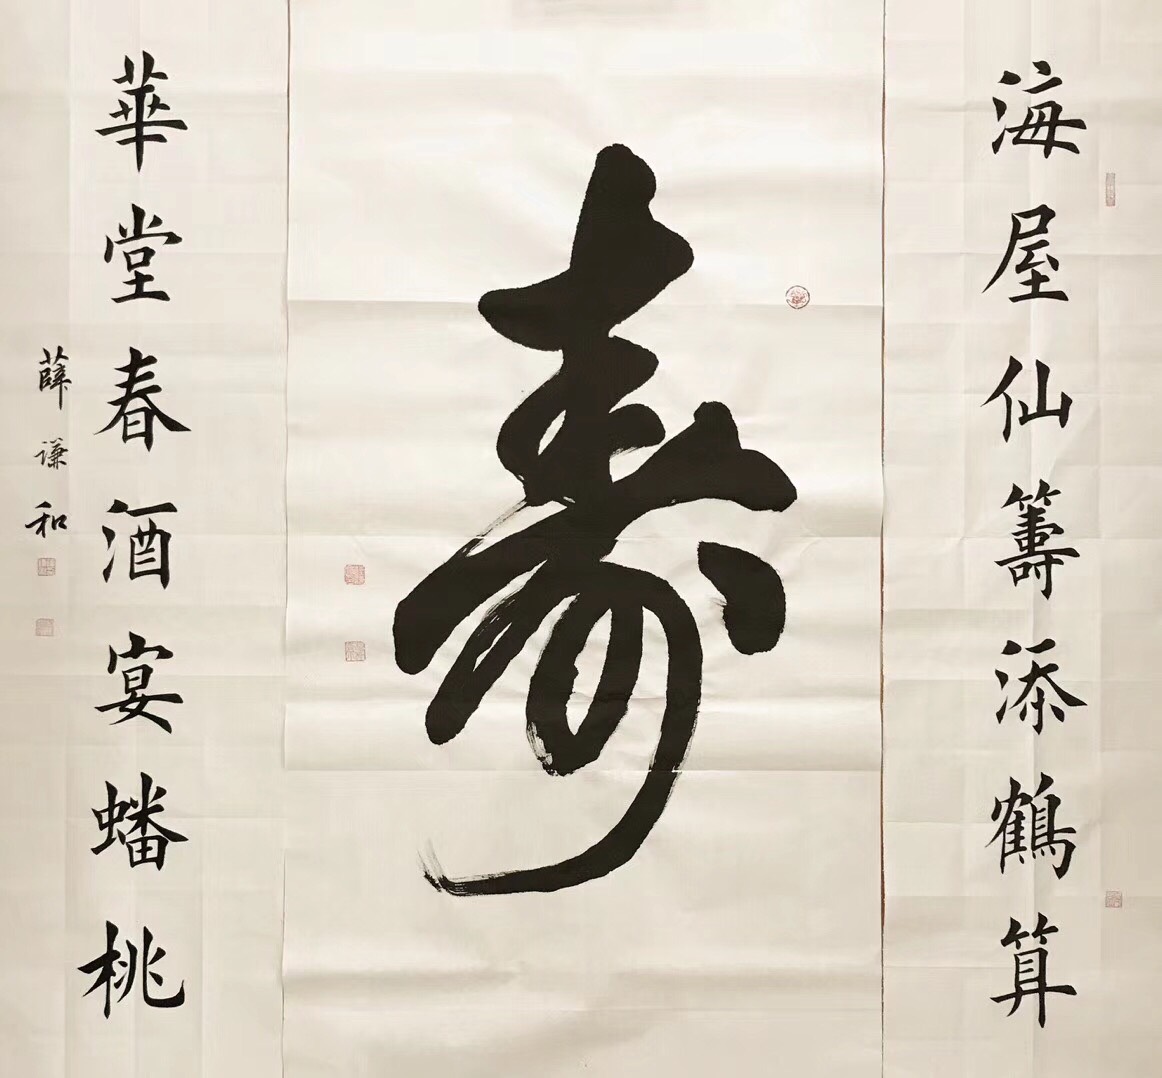 海屋仙籌添鶴算
寿
華堂春酒宴蟠桃
薛谦和